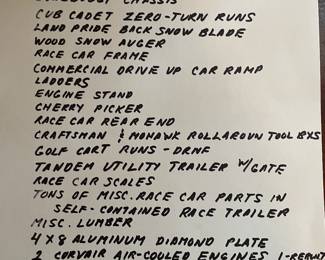 CHASSIS
CUB CADET ZERO-TURN RUNS
LAND PRIDE BACK SNOW BLADE
WOOD SNOW AUGER
RACE CAR FRAME
COMMERCIAL DRIVE UP CAR RAMP
LADDERS
ENGINE STAND
CHERRY PICKER
RACE CAR REAR END
CRAFTSMAN & MOHAWK ROLLAROUN TOOL BXS
GOLF CART RUNS - DRNF
TANDEM UTILITY TRAILER W/GATE
RACE CAR SCALES
TONS OF MISC. RACE CAR PARTS IN
SELF-CONTAINED RACE TRAILER
MISC. LUMBER
4 X 8 ALUMINUM DIAMOND PLATE
2 CORVAIR AIR-COOLED ENGINES 1-